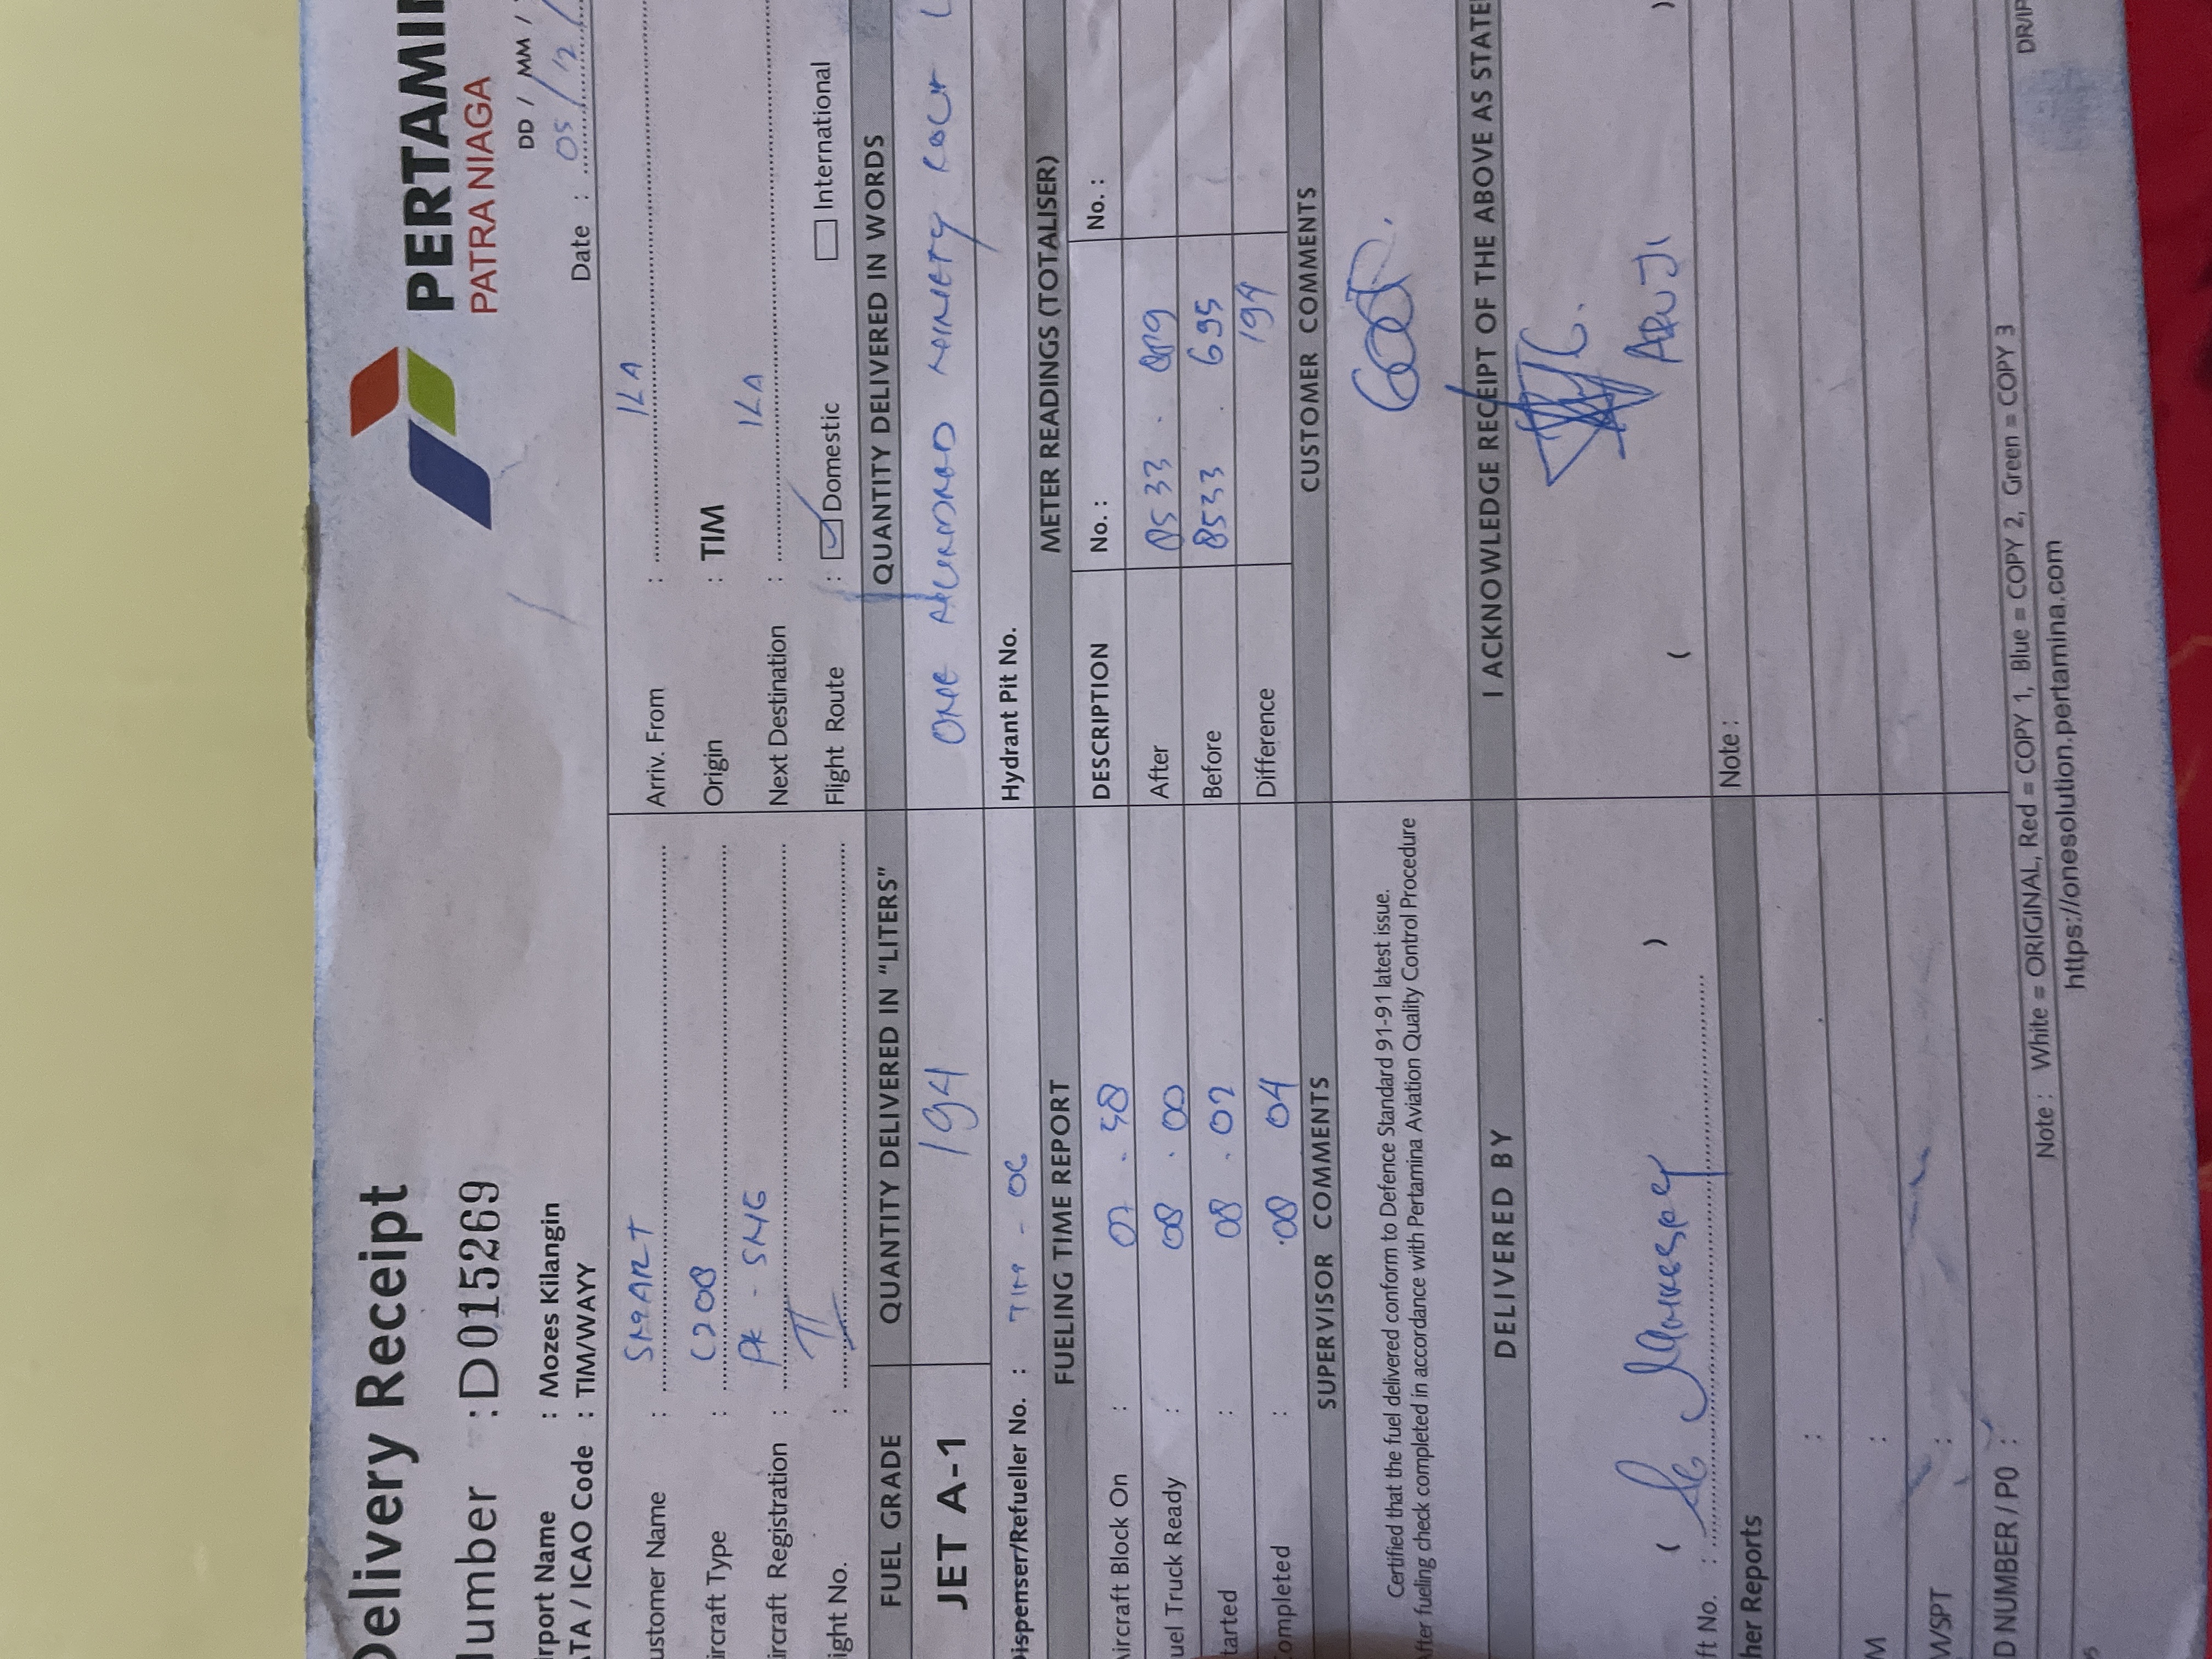 Delivery Receipt
PERTAMIN
PATRA NIAGA
Number : D015269
DD / MM /
Date : 05 / 12 /
irport Name : Mozes Kilangin
ATA / ICAO Code : TIM/WAYY
ustomer Name : SMART
Arriv. From : ILA
ircraft Type : C208
Origin : TIM
ircraft Registration : PK - SNG
Next Destination : ILA
ight No. :
Flight Route : Domestic International
FUEL GRADE QUANTITY DELIVERED IN "LITERS" QUANTITY DELIVERED IN WORDS
JET A-1 194 ONE HUNDRED NINETY FOUR L
Dispenser/Refueller No. : TIM - 06 Hydrant Pit No.
FUELING TIME REPORT METER READINGS (TOTALISER)
DESCRIPTION No. : No. :
ircraft Block On : 07 . 58
After 8533 . 889
uel Truck Ready : 08 . 00
Before 8533 . 695
tarted : 08 . 02
Difference 194
ompleted : 08 04
SUPERVISOR COMMENTS CUSTOMER COMMENTS
Certified that the fuel delivered conform to Defence Standard 91-91 latest issue.
After fueling check completed in accordance with Pertamina Aviation Quality Control Procedure
GOOD.
DELIVERED BY I ACKNOWLEDGE RECEIPT OF THE ABOVE AS STATE
( )
( ARUJI )
ft No. :
her Reports Note :
:
M :
WSPT :
D NUMBER / P0 :
Note : White = ORIGINAL, Red = COPY 1, Blue = COPY 2, Green = COPY 3
DR/IR
https://onesolution.pertamina.com